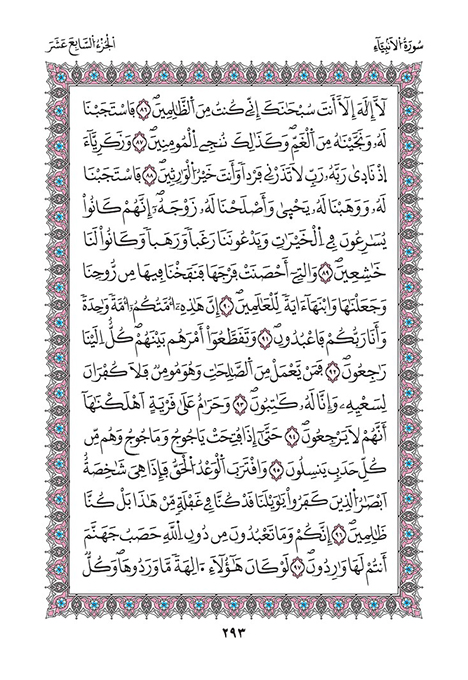 سُورَةُ الْأَنبِيَاءِ
الْجُزْءُ السَّابِعَ عَشَرَ
لَّا إِلَٰهَ إِلَّا أَنتَ سُبْحَٰنَكَ إِنِّي كُنتُ مِنَ اَلظَّٰلِمِينَ ٨٦ فَاسْتَجَبْنَا
لَهُۥ وَنَجَّيْنَٰهُ مِنَ اَلْغَمِّ وَكَذَٰلِكَ نُنجِي اِلْمُومِنِينَ ٨٧ وَزَكَرِيَّآءَ
إِذْ نَادَىٰ رَبَّهُۥ رَبِّ لَا تَذَرْنِي فَرْدًا وَأَنتَ خَيْرُ اُلْوَٰرِثِينَ ٨٨ فَاسْتَجَبْنَا
لَهُۥ وَوَهَبْنَا لَهُۥ يَحْيَىٰ وَأَصْلَحْنَا لَهُۥ زَوْجَهُۥ إِنَّهُمْ كَانُواْ
يُسَٰرِعُونَ فِي اِلْخَيْرَٰتِ وَيَدْعُونَنَا رَغَبًا وَرَهَبًا وَكَانُواْ لَنَا
خَٰشِعِينَ ٨٩ وَالتِے أَحْصَنَتْ فَرْجَهَا فَنَفَخْنَا فِيهَا مِن رُّوحِنَا
وَجَعَلْنَٰهَا وَابْنَهَا ءَايَةً لِّلْعَٰلَمِينَ ٩٠ إِنَّ هَٰذِهِۦ أُمَّتُكُمُ أُمَّةً وَٰحِدَةً
وَأَنَا رَبُّكُمْ فَاعْبُدُونِ ٩١ وَتَقَطَّعُواْ أَمْرَهُم بَيْنَهُمْ كُلٌّ اِلَيْنَا
رَٰجِعُونَ ٩٢ فَمَنْ يَّعْمَلْ مِنَ اَلصَّٰلِحَٰتِ وَهُوَ مُومِنٌ فَلَا كُفْرَانَ
لِسَعْيِهِۦ وَإِنَّا لَهُۥ كَٰتِبُونَ ٩٣ وَحَرَٰمٌ عَلَىٰ قَرْيَةٍ اَهْلَكْنَٰهَا
أَنَّهُمْ لَا يَرْجِعُونَ ٩٤ حَتَّىٰ إِذَا فُتِحَتْ يَاجُوجُ وَمَاجُوجُ وَهُم مِّن
كُلِّ حَدَبٍ يَنسِلُونَ ٩٥ وَاقْتَرَبَ اَلْوَعْدُ اُلْحَقُّ فَإِذَا هِيَ شَٰخِصَةٌ
أَبْصَٰرُ اُلذِينَ كَفَرُواْ يَٰوَيْلَنَا قَدْ كُنَّا فِي غَفْلَةٍ مِّنْ هَٰذَا بَلْ كُنَّا
ظَٰلِمِينَ ٩٦ إِنَّكُمْ وَمَا تَعْبُدُونَ مِن دُونِ اِللَّهِ حَصَبُ جَهَنَّمَ
أَنتُمْ لَهَا وَٰرِدُونَ ٩٧ لَوْ كَانَ هَٰٓؤُلَآءِ ءَالِهَةً مَّا وَرَدُوهَا وَكُلٌّ
٢٩٣